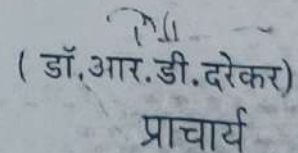 ( डॉ.आर.डी.दरेकर)
प्राचार्य